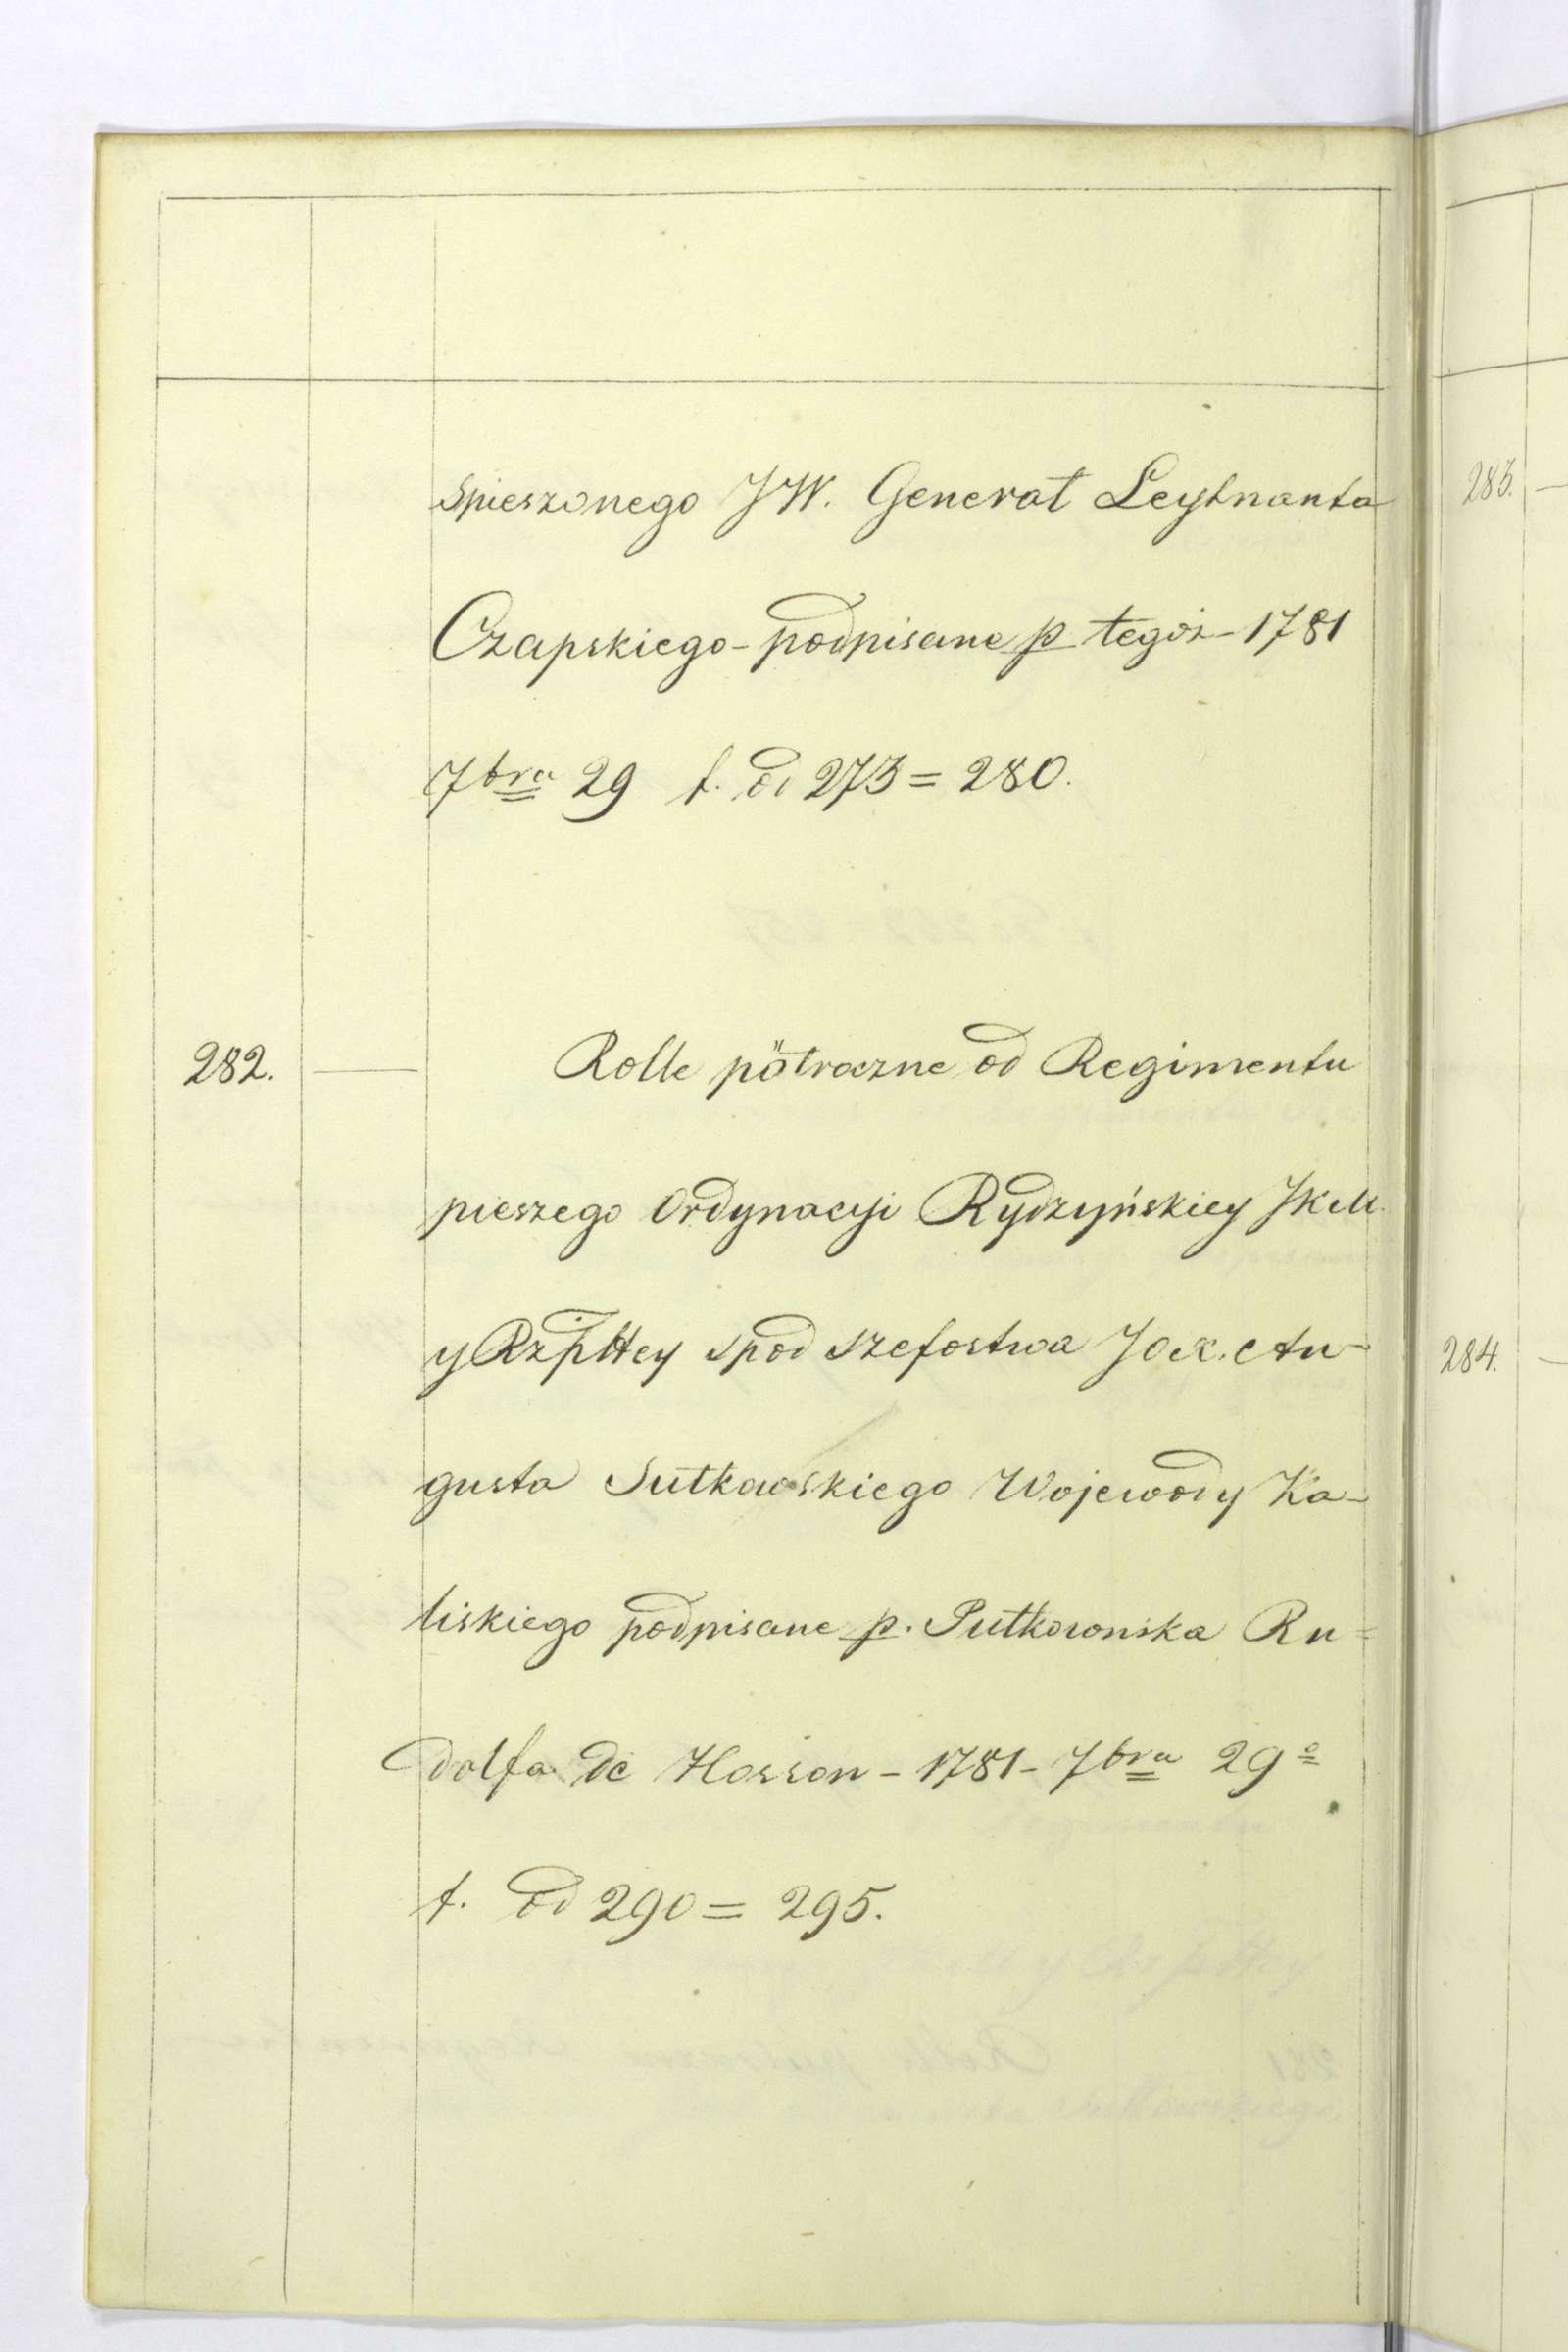 spieszonego JW. Generał Leytnanta
Czapskiego - podpisane p tegoż - 1781
7bra 29 f. od 273 = 280.
282. — Rolle półroczne od Regimentu
pieszego Ordynacyi Rydzyńskiey JKM.
y Rzpltey spod szefostwa JOX. Au-
gusta Sułkowskiego Wojewody Ka-
liskiego podpisane p. Pułkownika Ru=
dolfa de Hosson - 1781 - 7bra 29º
f. od 290 = 295.
283. —
284. —